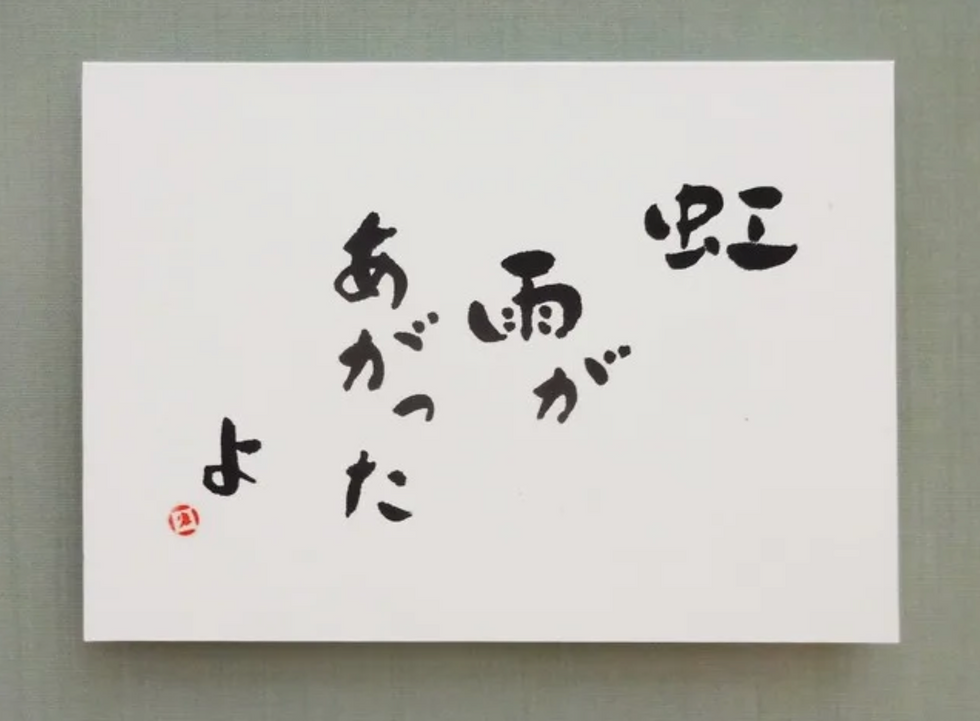 虹
雨が
あがった
よ